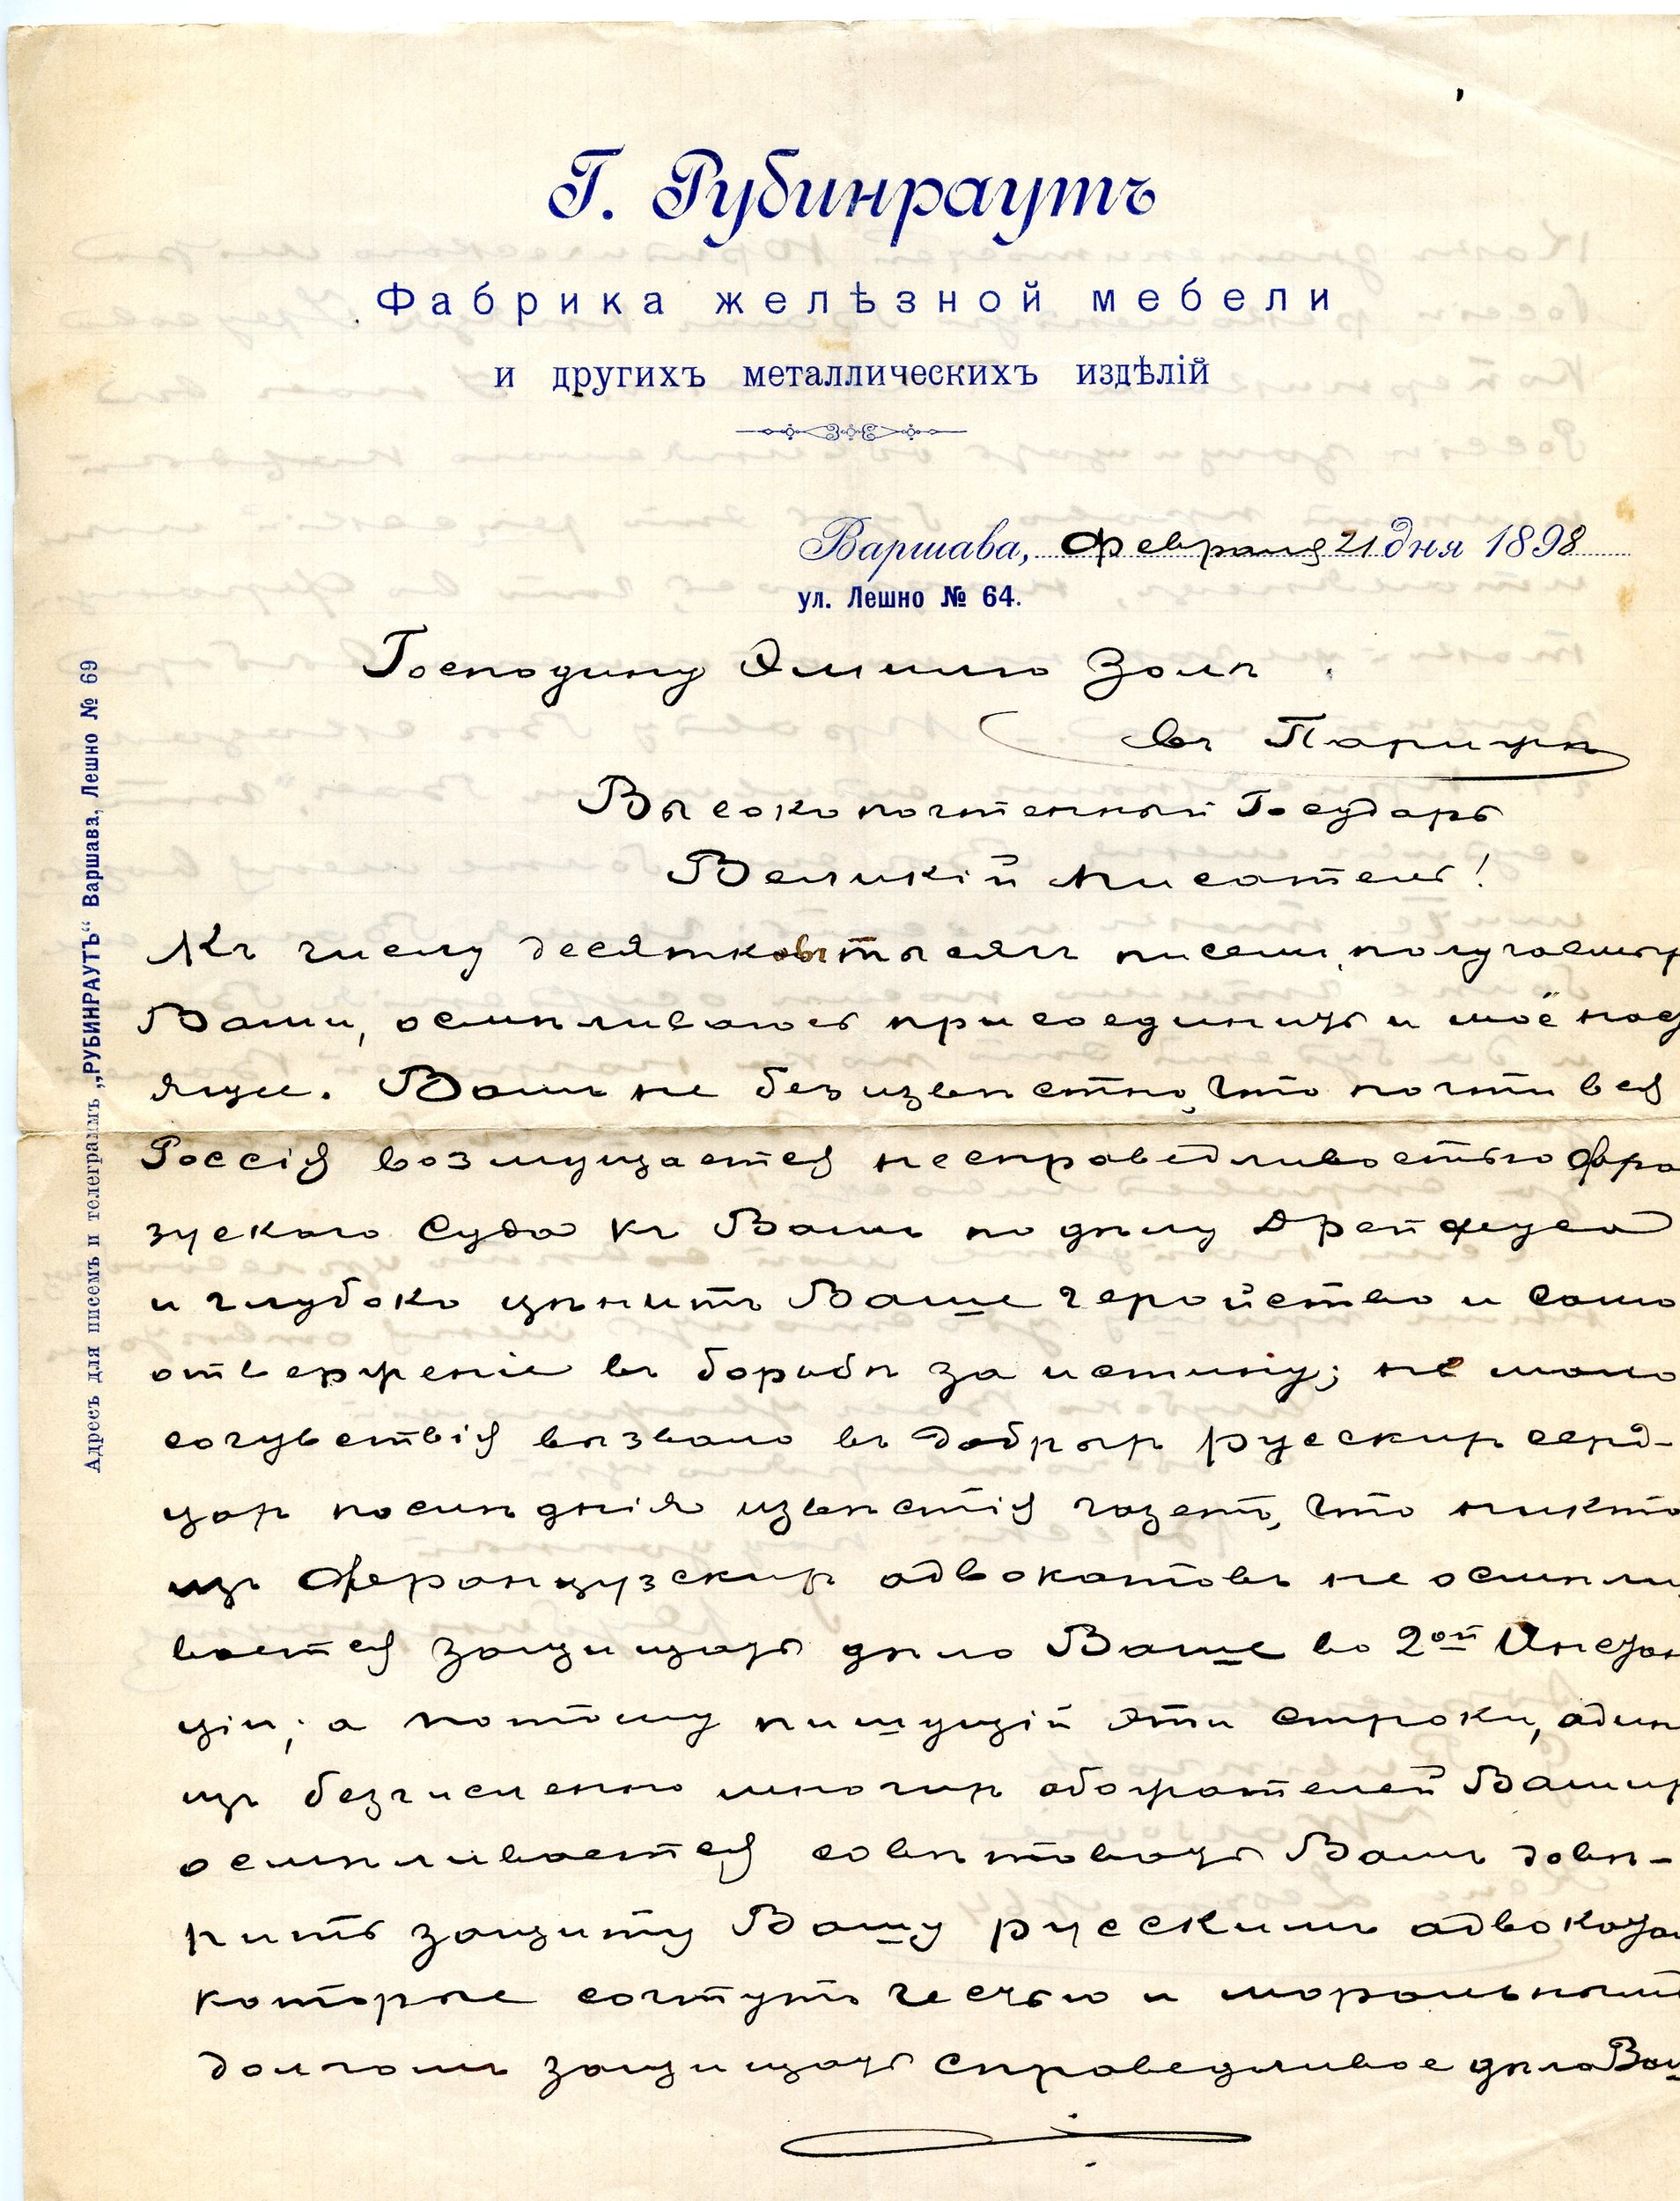 Г. Рубинраутъ
Фабрика желѣзной мебели
и другихъ металлическихъ издѣлій
Варшава, Февраля 21 дня 1898
ул. Лешно № 64.
Адресъ для писемъ и телеграммъ „РУБИНРАУТЪ“ Варшава, Лешно № 69
Господину Эмилю Золѣ
въ Парижѣ
Высокопочтенный Государь
Великій писатель!
Къ числу десятковъ тысячъ писемъ, получаемых
Вами, осмѣливаюсь присоединить и моё нас
ящее. Вамъ не безизвѣстно, что почти вся
Россія возмущается несправедливостью Фра
зускаго Суда къ Вамъ по дѣлу Дрейфуса
и глубоко цѣнитъ Ваше геройство и само
отверженіе въ борьбѣ за истину; не мало
сочувствія вызвало въ добрыхъ русскихъ серд-
цахъ послѣднія извѣстія газетъ, что никто
изъ Французскихъ адвокатовъ не осмѣли
вается защищать дѣло Ваше во 2ой Инстан
ціи; а потому пишущій эти строки, один
изъ безчисленно многихъ обожателей Ваших
осмѣливается совѣтовать Вамъ довѣ-
рить защиту Вашу русскимъ адвоката
которые сочтутъ честью и моральным
долгомъ защищать справедливое дѣло Ваш